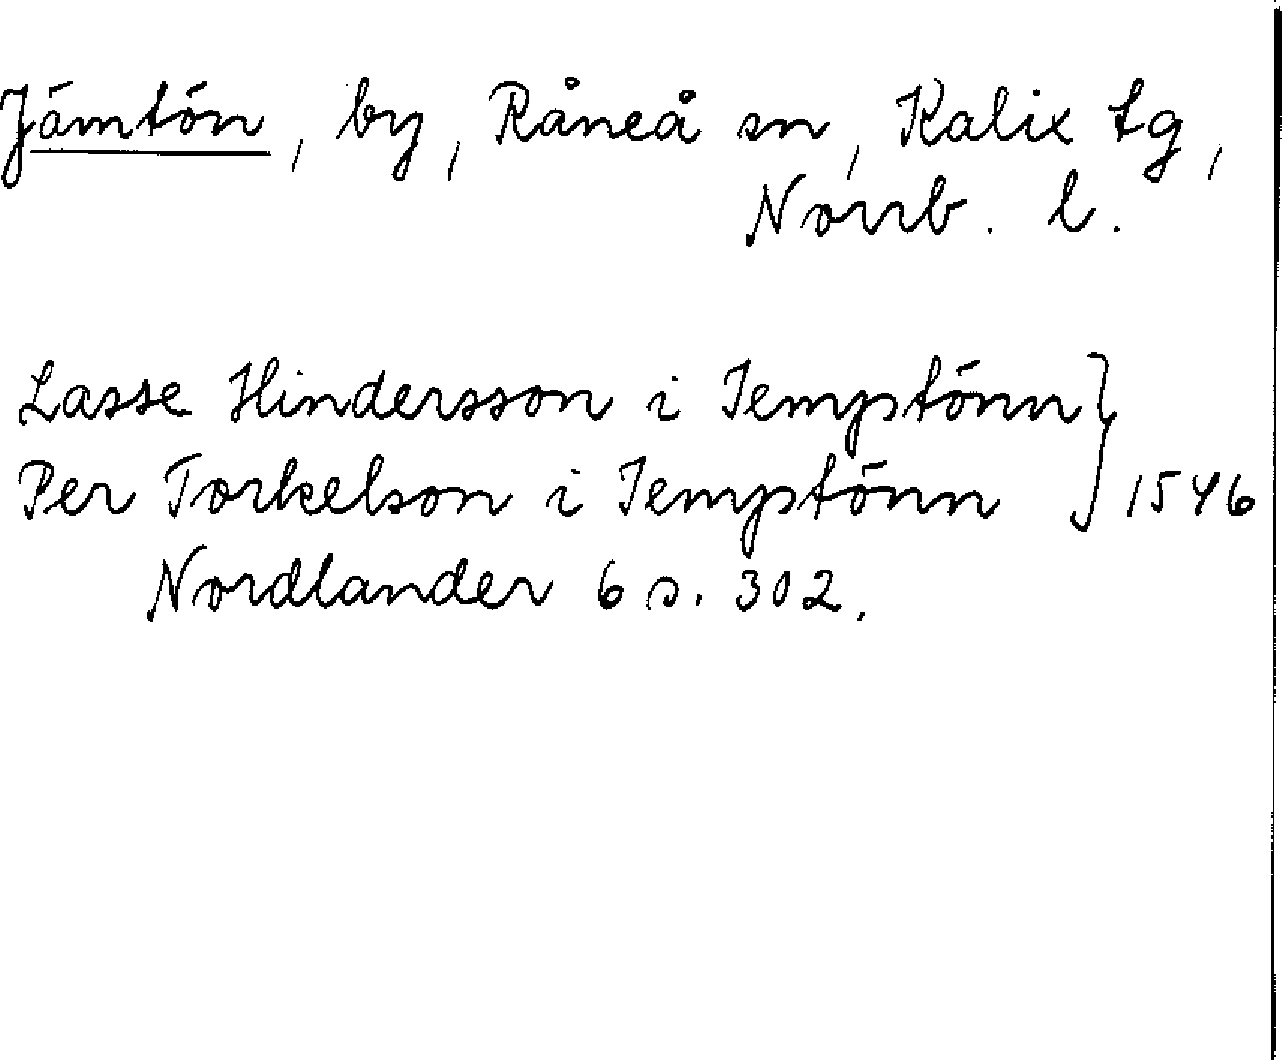 Jämtön, by, Råneå sn, Kalix tg,
Norrb. l.
Lasse Hindersson i Jemptönn }
Per Torkelson i Jemptönn } 1546
Nordlander 6 s. 302.